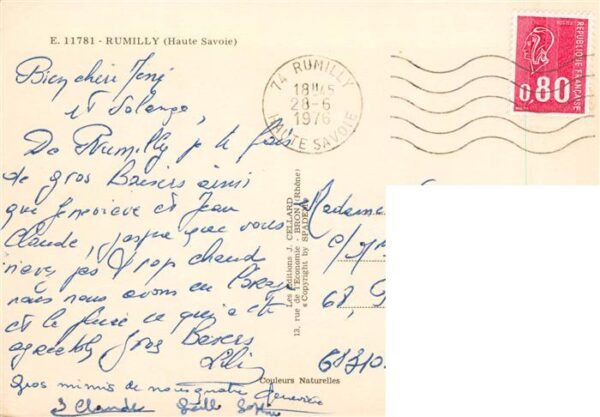 E. 11781 - RUMILLY (Haute Savoie)
Bien chère José
et Solange,
De Rumilly je te fais
de gros Baisers ainsi
que Geneviève et Jean
Claude, que vous
n'avez pas trop chaud
nous nous avons eu l'orage
et la pluie ce qui a été
agréable, Gros Baisers
Lili
Gros mimis de nous quatre Geneviève
J Claude Gaëlle
74 RUMILLY
18H45
28-6
1976
HAUTE SAVOIE
REPUBLIQUE FRANÇAISE
0,80
Les éditions J. CELLARD
13, rue de l'Economie - BRON (Rhône)
« Copyright by SPADEM »
Couleurs Naturelles
Madame
68,
68310